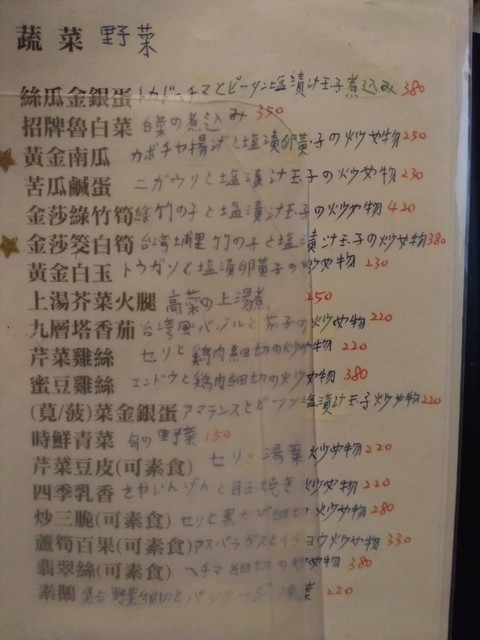 蔬菜 野菜
絲瓜金銀蛋 トカドヘチマとピータン塩漬け玉子煮込み 380
招牌魯白菜 白菜の煮込み 350
黃金南瓜 カボチャ揚げと塩漬卵黄子の炒め物 250
苦瓜鹹蛋 ニガウリと塩漬け玉子の炒め物 230
金莎綠竹筍 綠竹の子と塩漬け玉子の炒め物 420
金莎筊白筍 台湾埔里竹の子と塩漬け玉子の炒め物 380
黃金白玉 トウガンと塩漬卵黄子の炒め物 230
上湯芥菜火腿 高菜の上湯煮 250
九層塔香茄 台湾風バジルと茄子の炒め物 220
芹菜雞絲 セリと鶏肉細切の炒め物 220
蜜豆雞絲 エンドウと鶏肉細切の炒め物 380
(莧/菠)菜金銀蛋 アマランスとピータン塩漬け玉子炒め物 220
時鮮青菜 旬の野菜 150
芹菜豆皮(可素食) セリ・湯葉炒め物 220
四季乳香 さやいんげんと目玉焼き 炒め物 220
炒三脆(可素食) セリと黒 細切り炒め物 280
蘆筍百果(可素食) アスパラガスとイチョウ炒め物 330
翡翠絲(可素食) ヘチマ細切の炒め物 380
素鵝 野菜細切と 220